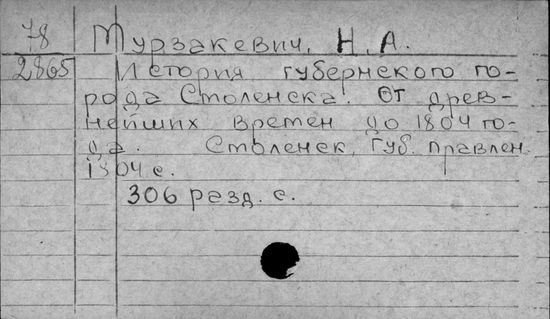 78 Мурзакевич, Н. А.
2865 История губернского го-
рода Смоленска. От древ-
нейших времен до 1804 го-
да. Смоленск, Губ. правлен.
1804 г.
306 разд. с.